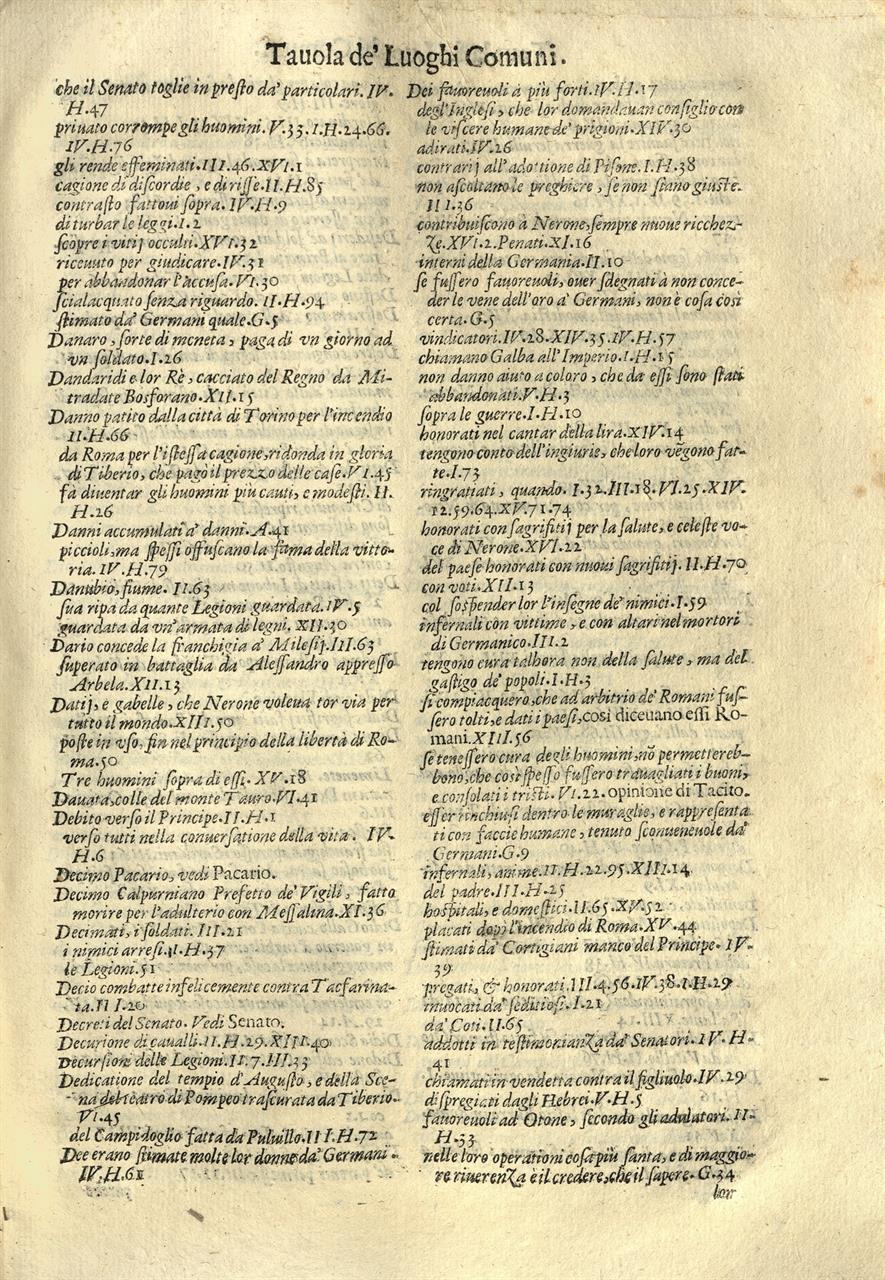 Tauola de' Luoghi Comuni.
che il Senato toglie in presto da' particolari. IV.
H.47
priuato corrompe gli huomini. V.33.I.H.24.66.
IV.H.76
gli rende effeminati.III.46.XVI.1
cagione di discordie, e di risse.II.H.85
contrasto fattoui sopra. IV.H.9
di turbar le leggi.I.2
scopre i vitij occulti.XVI.32
riceuuto per giudicare.IV.31
per abbandonar l'accusa.VI.30
scialacquato senza riguardo. II.H.94
stimato da' Germani quale.G.5
Danaro, sorte di moneta, paga di vn giorno ad
vn soldato.I.26
Dandaridi e lor Rè, cacciato del Regno da Mi-
tradate Bosforano.XII.15
Danno patito dalla città di Torino per l'incendio
II.H.66
da Roma per l'istessa cagione, ridonda in gloria
di Tiberio, che pagò il prezzo delle case.VI.45
fà diuentar gli huomini piu cauti, e modesti. II.
H.26
Danni accumulati à danni.A.41
piccioli, ma spessi offuscano la fama della vitto-
ria. IV.H.79
Danubio, fiume. II.63
sua ripa da quante Legioni guardata.IV.5
guardata da vn'armata di legni. XII.30
Dario concede la franchigia a' Milesij.III.63
superato in battaglia da Alessandro appresso
Arbela.XII.13
Datij, e gabelle, che Nerone voleua tor via per
tutto il mondo.XIII.50
poste in vso, fin nel principio della libertà di Ro-
ma.50
Tre huomini sopra di essi. XV.18
Dauata, colle del monte Tauro.VI.41
Debito verso il Principe.II.H.1
verso tutti nella conuersatione della vita. IV.
H.6
Decimo Pacario, vedi Pacario.
Decimo Calpurniano Prefetto de' Vigili, fatto
morire per l'adulterio con Messalina.XI.36
Decimati, i soldati. III.21
i nimici arresi.I.H.37
le Legioni.51
Decio combatte infelicemente contra Tacfarina-
ta.III.20
Decreti del Senato. Vedi Senato.
Decurione di caualli.II.H.29.XIII.40
Decursioni delle Legioni.II.7.III.33
Dedicatione del tempio d'Augusto, e della Sce-
na del teatro di Pompeo trascurata da Tiberio.
VI.45
del Campidoglio fatta da Puluillo.III.H.72
Dee erano stimate molte lor donne da' Germani
IV.H.61
Dei fauoreuoli à più forti.IV.H.17
degl'Inglesi, che lor domandauan consiglio con
le viscere humane de' prigioni.XIV.30
adirati.IV.26
contrarij all'adottione di Pisone.I.H.38
non ascoltano le preghiere, se non siano giuste.
III.36
contribuiscono à Nerone, sempre nuoue ricchez-
ze.XVI.2.Penati.XI.16
interni della Germania.II.10
se fussero fauoreuoli, ouer sdegnati à non conce-
der le vene dell'oro a' Germani, non è cosa così
certa. G.5
vindicatori.IV.28.XIV.35.IV.H.57
chiamano Galba all'Imperio.I.H.15
non danno aiuto a coloro, che da essi sono stati
abbandonati.V.H.3
sopra le guerre.I.H.10
honorati nel cantar della lira.XIV.14
tengono conto dell'ingiurie, che loro vegono fat-
te.I.73
ringratiati, quando. I.32.III.18.VI.25.XIV.
12.59.64.XV.71.74
honorati con sagrifitij per la salute, e celeste vo-
ce di Nerone.XVI.22
del paese honorati con nuoui sagrifitij. II.H.70
con voti.XII.13
col sospender lor l'insegne de' nimici.I.59
infernali con vittime, e con altari nel mortori
di Germanico.III.2
tengono cura talhora non della salute, ma del
gastigo de' popoli.I.H.3
si compiacquero, che ad arbitrio de' Romani fus-
sero tolti, e dati i paesi, così diceuano essi Ro-
mani.XIII.56
se tenessero cura degli huomini, nō permettereb-
bono, che così spesso fussero trauagliati i buoni,
e consolati i tristi. VI.22. opinione di Tacito.
esser rinchiusi dentro le muraglie, e rappresenta
ti con faccie humane, tenuto sconueneuole da'
Germani.G.9
infernali, anime.II.H.22.95.XIII.14
del padre.III.H.25
hospitali, e domestici.II.65.XV.52
placati dopò l'incendio di Roma.XV.44
stimati da' Cortigiani manco del Principe. IV.
39
pregati, & honorati.III.4.56.IV.38.I.H.29
inuocati da' seditiosi.I.21
da' Coti.II.65
addotti in testimonianza da' Senatori. IV. H.
41
chiamati in vendetta contra il figliuolo.IV.29
dispregiati dagli Hebrei.V.H.5
fauoreuoli ad Otone, secondo gli adulatori. II.
H.33
nelle loro operationi cosa più santa, e di maggio-
re riuerenza è il credere, che il sapere. G.34
lor